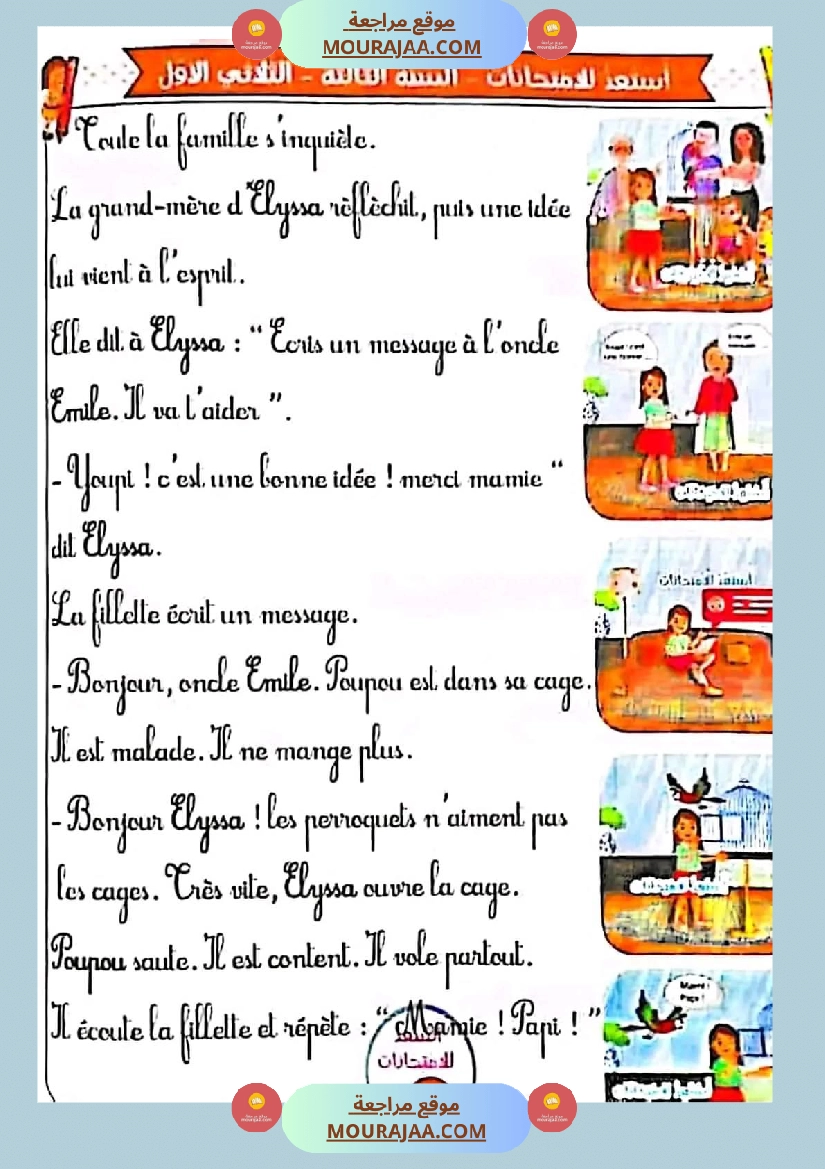 موقع مراجعة
MOURAJAA.COM
أستعد للامتحانات - السنة الثالثة - الثلاثي الأول
Toute la famille s'inquiète.
La grand-mère d'Elyssa réfléchit, puis une idée
lui vient à l'esprit.
Elle dit à Elyssa : “ Ecris un message à l'oncle
Emile. Il va t'aider ”.
- Youpi ! c'est une bonne idée ! merci mamie “
dit Elyssa.
La fillette écrit un message.
- Bonjour, oncle Emile. Poupou est dans sa cage.
Il est malade. Il ne mange plus.
- Bonjour Elyssa ! les perroquets n'aiment pas
les cages. Très vite, Elyssa ouvre la cage.
Poupou saute. Il est content. Il vole partout.
Il écoute la fillette et répète : “ Mamie ! Papi ! ”
أستعد
للامتحانات
موقع مراجعة
MOURAJAA.COM